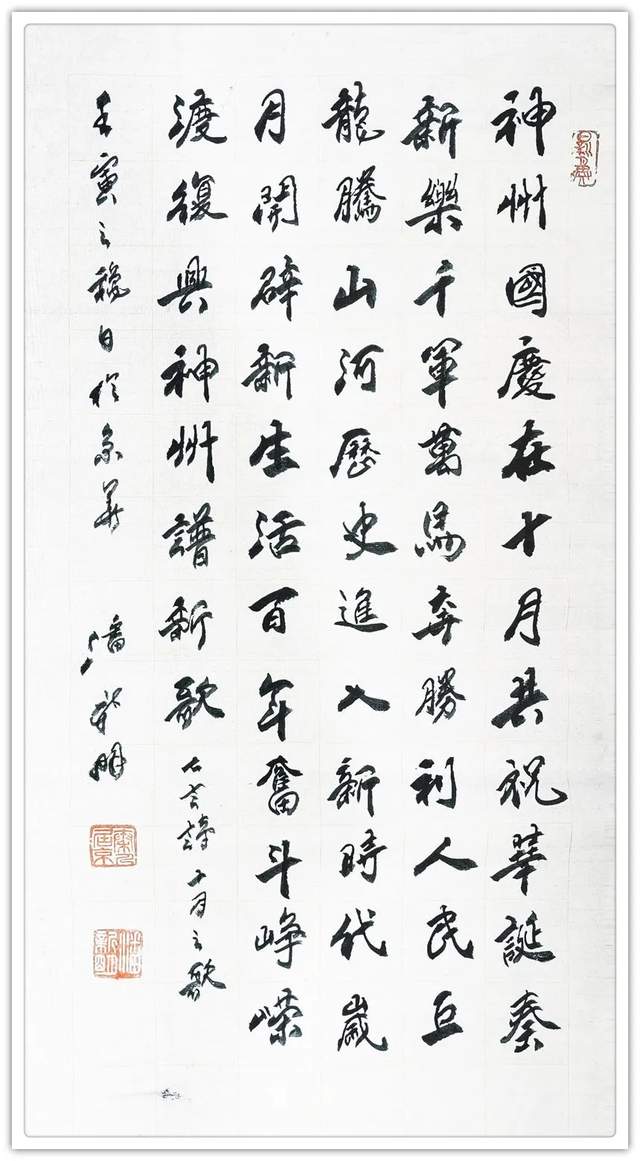 神州國慶在十月共祝華誕奏
新樂千軍萬馬奔勝利人民巨
龍騰山河歷史進入新時代歲
月開辟新生活百年奮斗崢嶸
渡復興神州譜新歌
七言詩十月之歌
壬寅之穐日於京華
潘新明